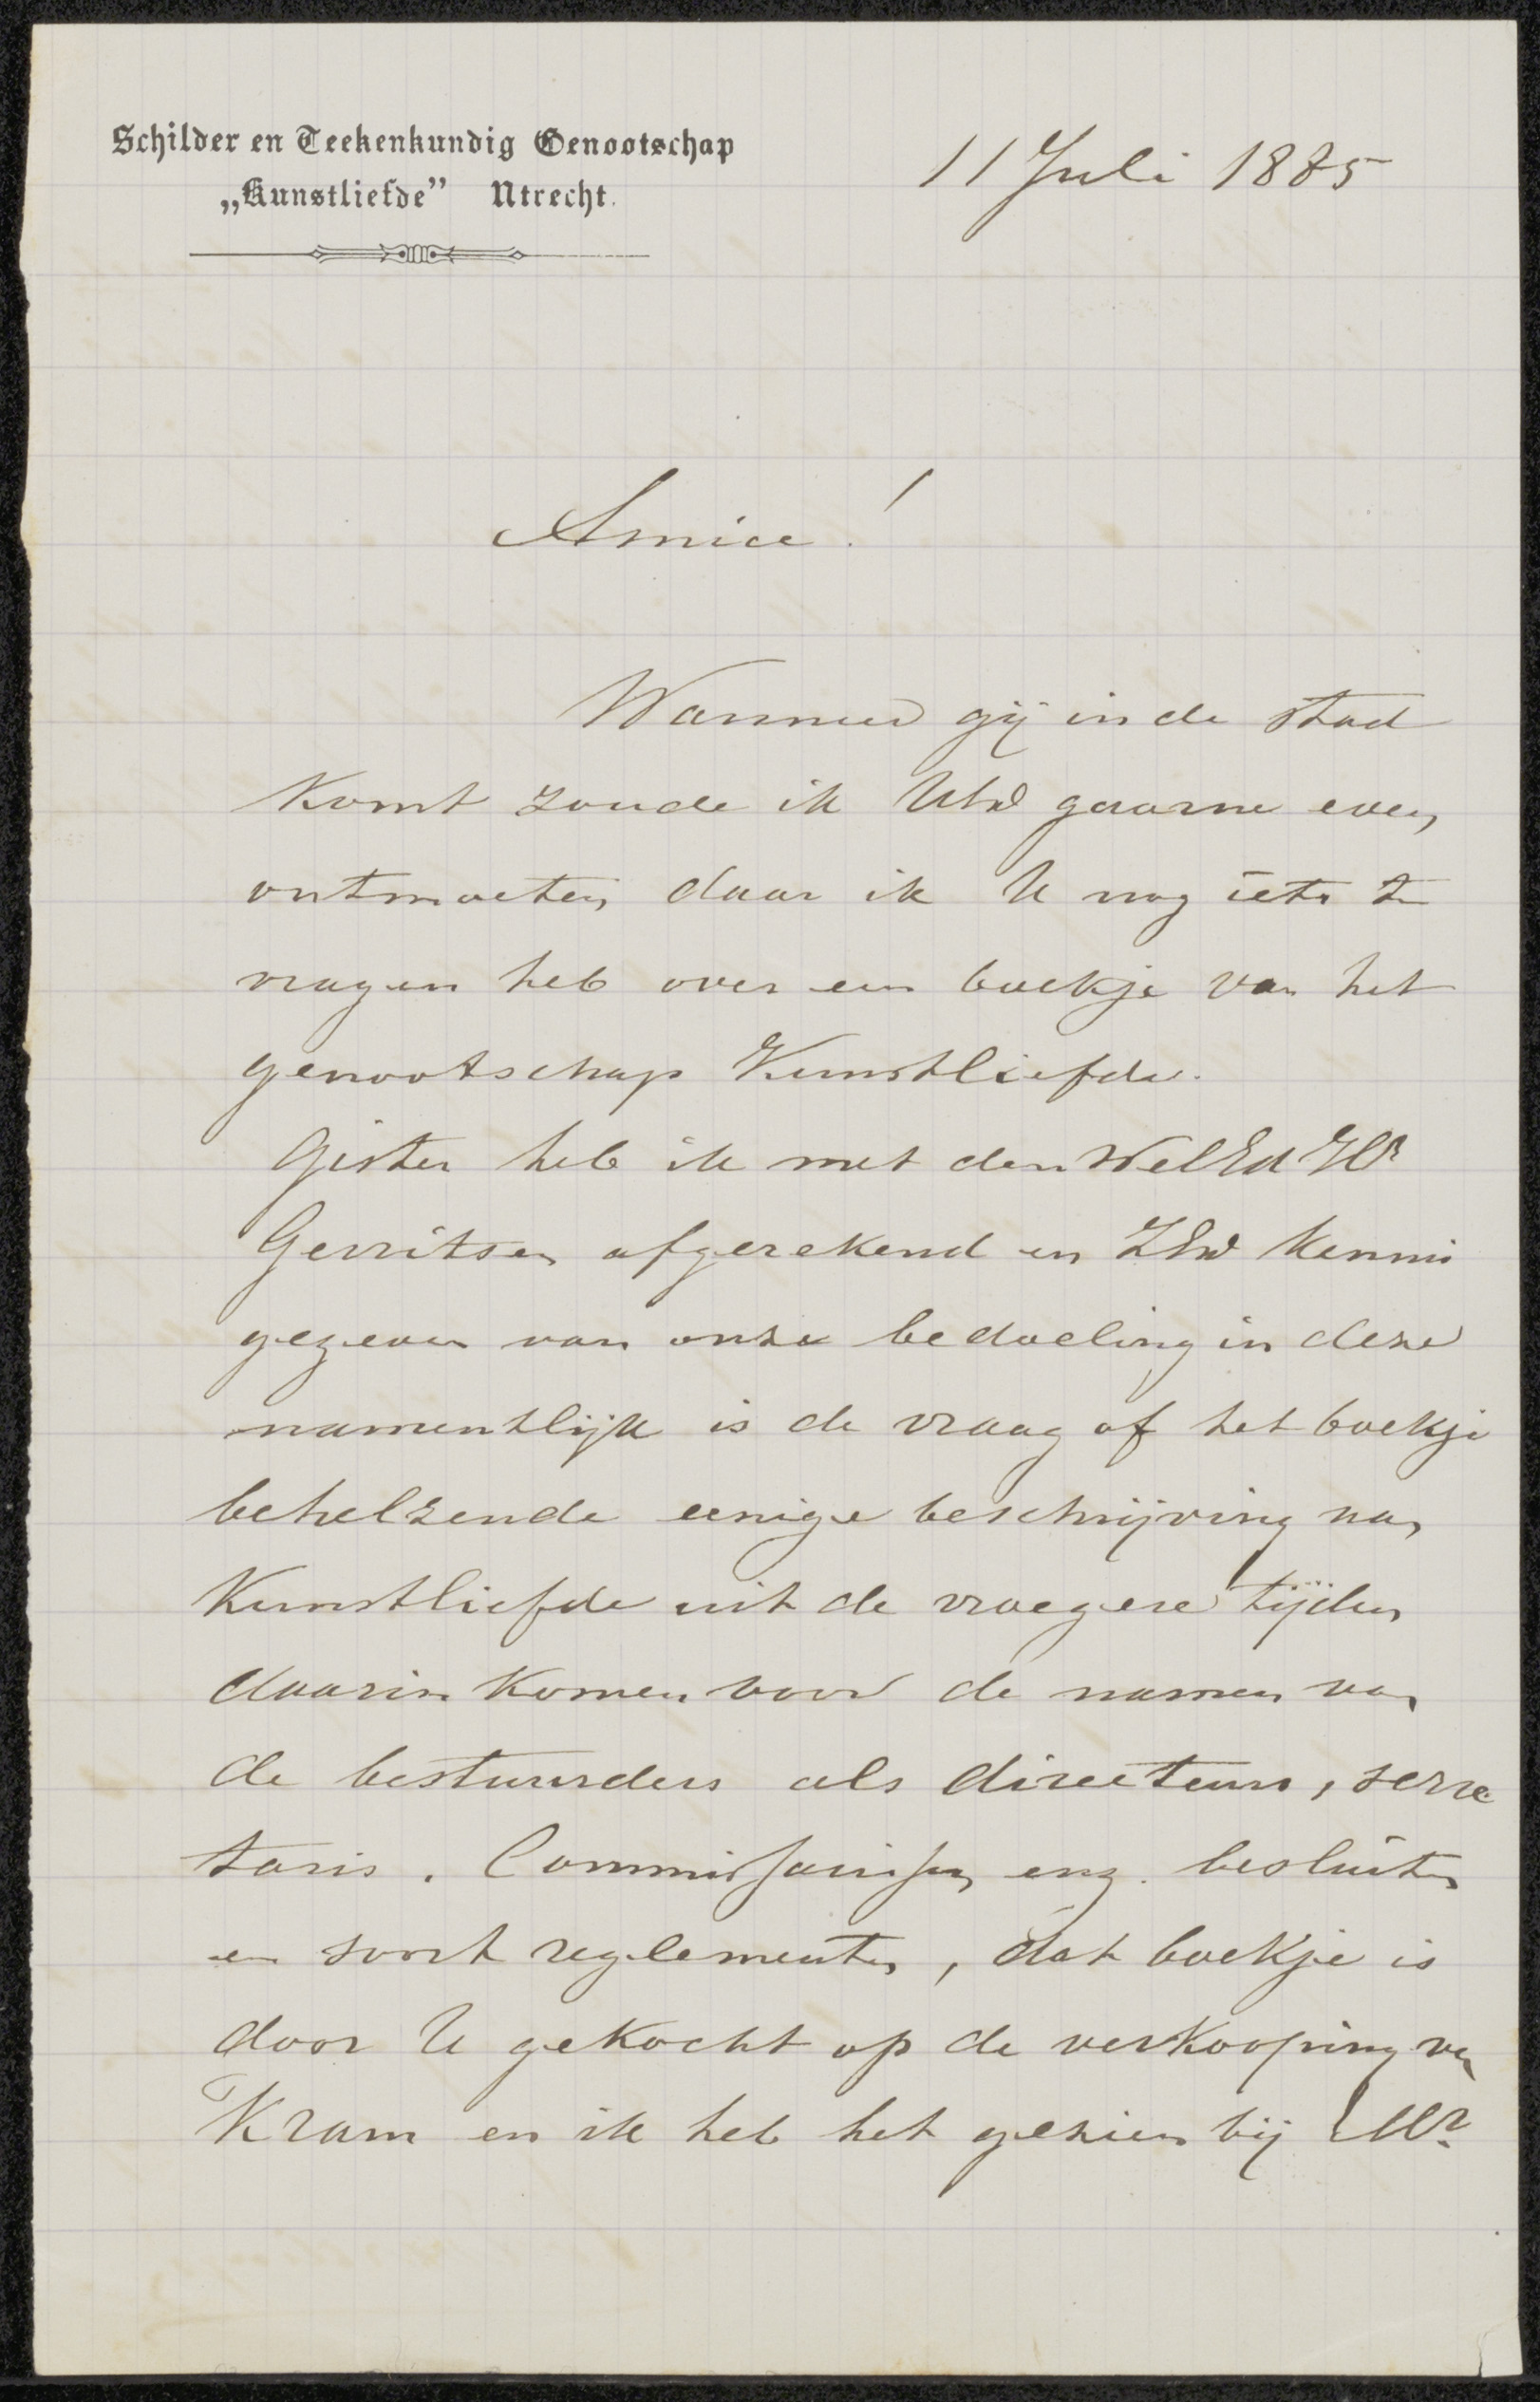 Schilder en Teekenkundig Genootschap
„Kunstliefde” Utrecht.
11 Juli 1885
Amice!
Wanneer gij in de stad
komt zoude ik UEd gaarne even
ontmoeten daar ik U nog iets te
vragen heb over een boekje van het
genootschap Kunstliefde.
Gister heb ik met den WelEd Hr
Gerritsen afgerekend en ZEd kennis
gegeven van onze bedoeling in deze
namentlijk is de vraag of het boekje
behelzende eenige beschrijving van
Kunstliefde uit de vroegere tijden
daarin komen voor de namen van
de bestuurders als directeurs, secre
taris. Commissarissen enz. besluiten
en soort reglementen, dat boekje is
door U gekocht op de verkooping van
Kram en ik heb het gezien bij Mr.